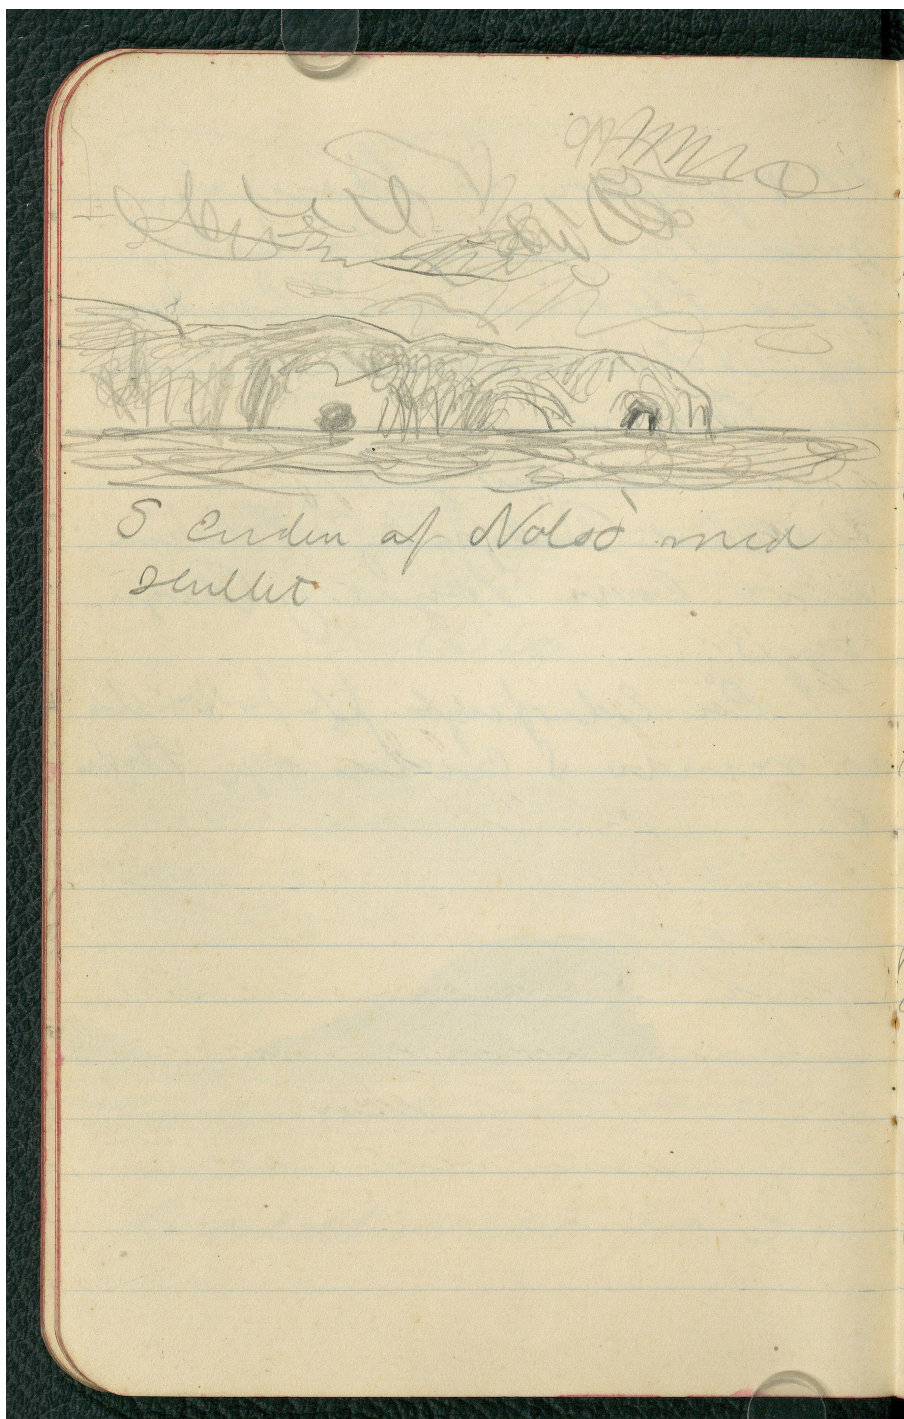 S Enden af Nolsö med
Hullet